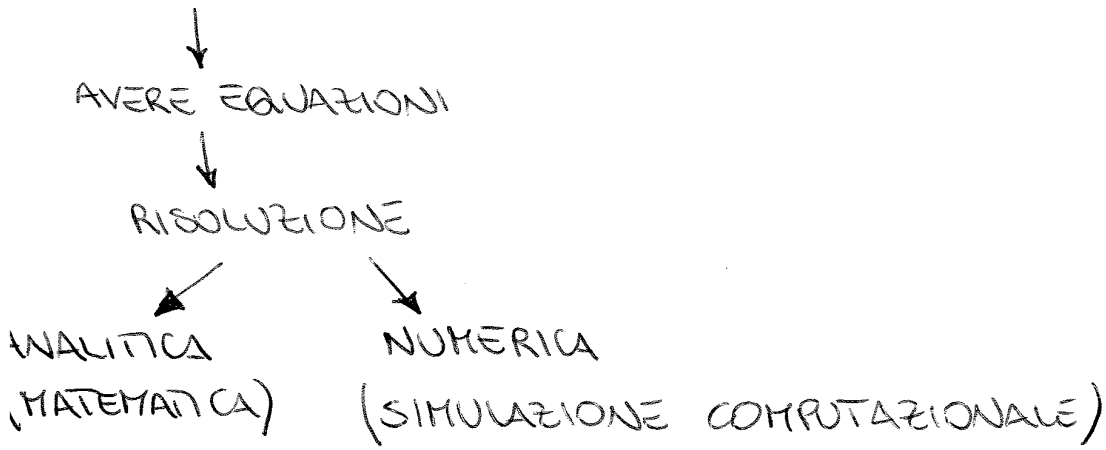 AVERE EQUAZIONI
RISOLUZIONE
ANALITICA NUMERICA
(MATEMATICA) (SIMULAZIONE COMPUTAZIONALE)